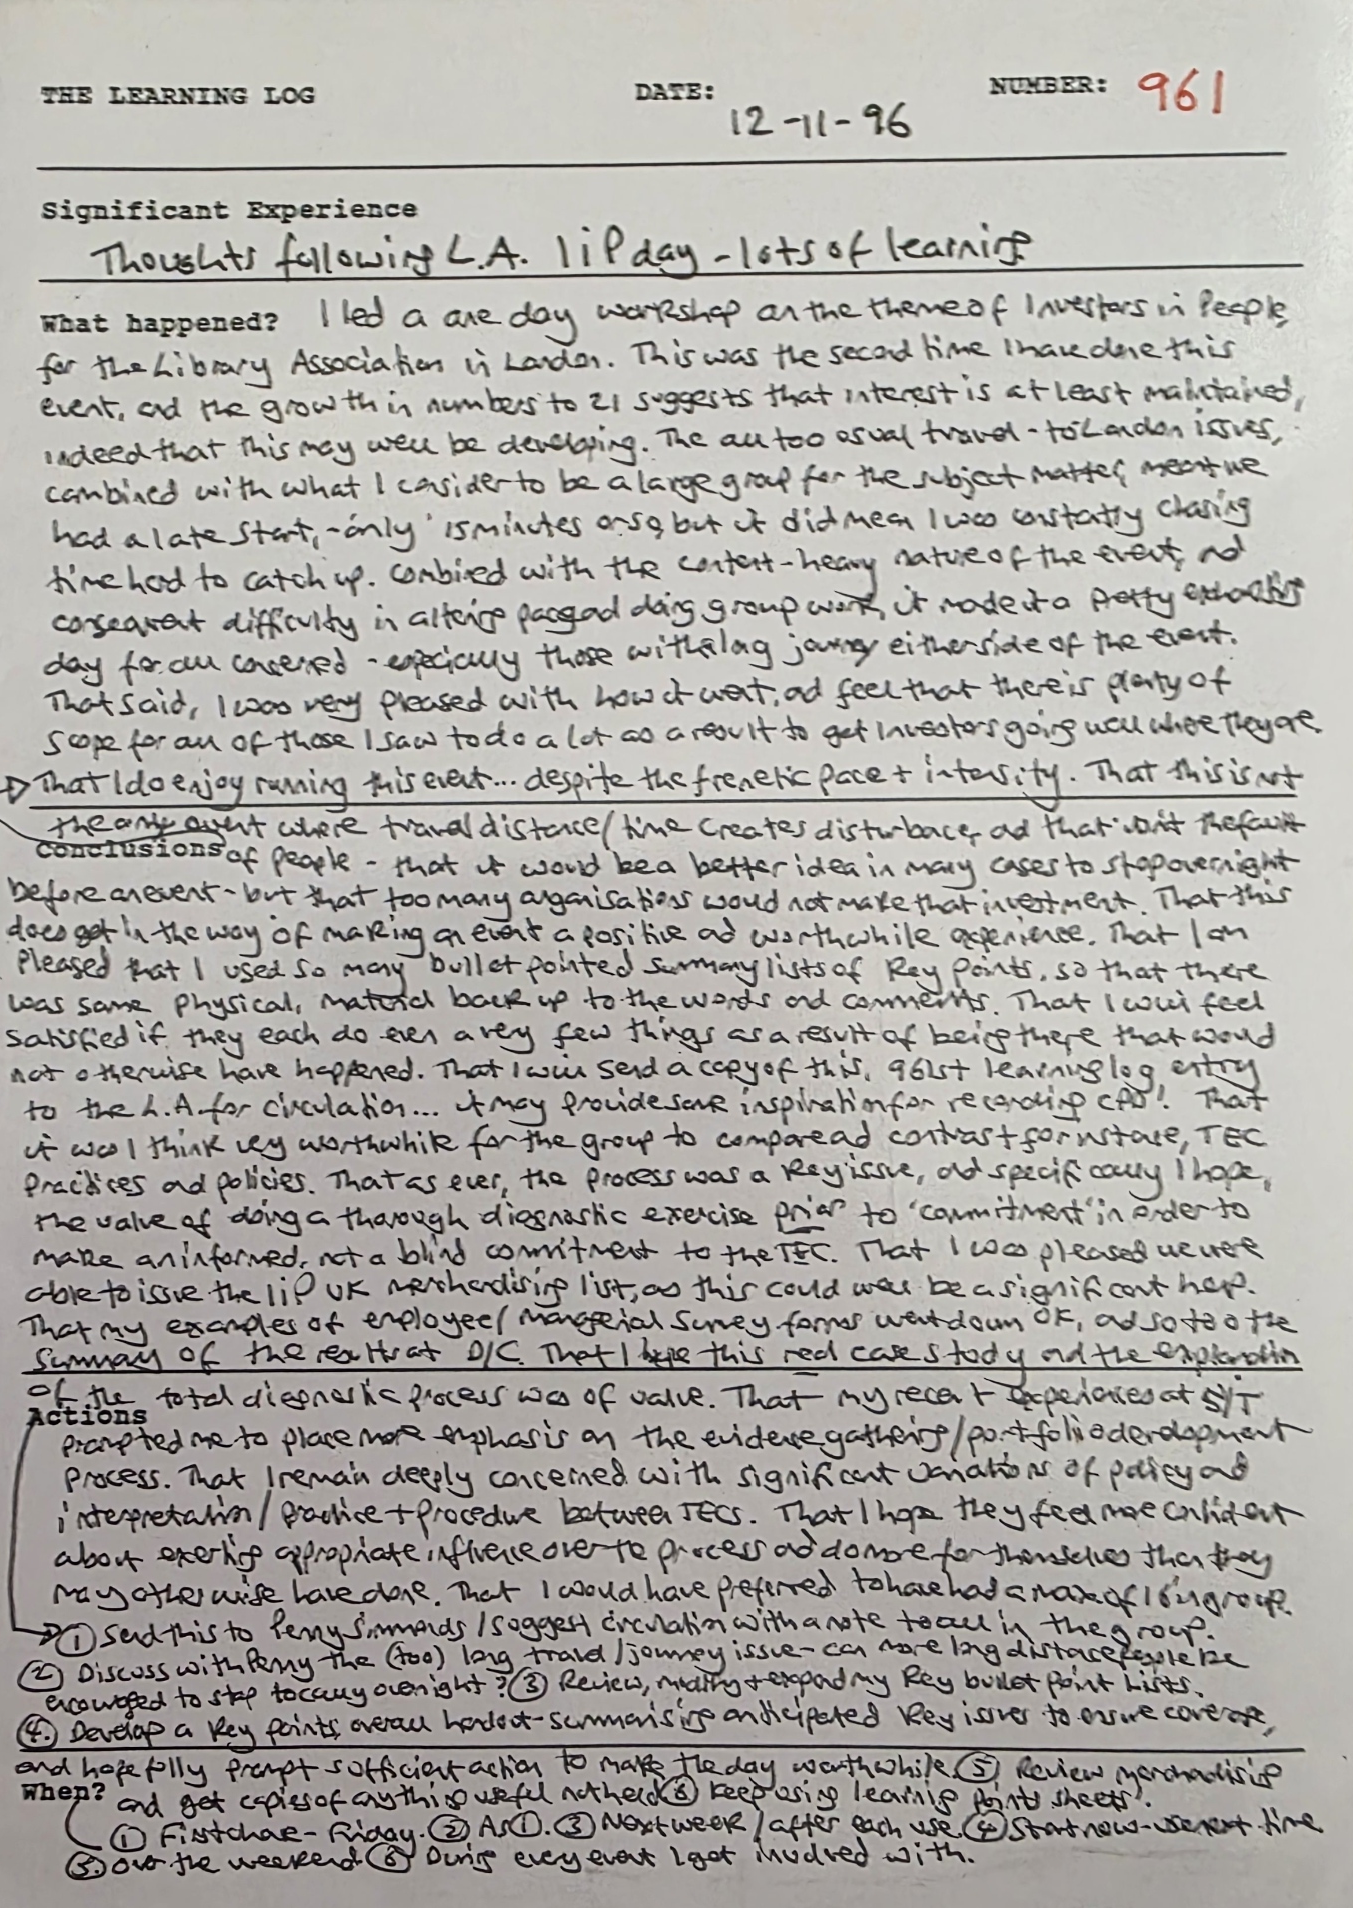 THE LEARNING LOG DATE: NUMBER: 961
12-11-96
Significant Experience
Thoughts following L.A. IiP day - lots of learning
What happened? I led a one day workshop on the theme of Investors in People,
for the Library Association in London. This was the second time I have done this
event, and the growth in numbers to 21 suggests that interest is at least maintained,
indeed that this may well be developing. The all too usual travel-to-London issues,
combined with what I consider to be a large group for the subject matter, meant we
had a late start, - only 15 minutes or so, but it did mean I was constantly chasing
time hard to catch up. Combined with the content-heavy nature of the event, and
consequent difficulty in altering pace and doing group work, it made it a pretty exhausting
day for all concerned - especially those with a long journey either side of the event.
That said, I was very pleased with how it went, and feel that there is plenty of
scope for all of those I saw to do a lot as a result to get Investors going well where they are.
That I do enjoy running this event... despite the frenetic pace + intensity. That this is not
the only event where travel distance/time creates disturbance, and that isn't the fault
Conclusions of people - that it would be a better idea in many cases to stop overnight
before an event - but that too many organisations would not make that investment. That this
does get in the way of making an event a positive and worthwhile experience. That I am
pleased that I used so many bullet pointed summary lists of key points, so that there
was some physical, material back up to the words and comments. That I will feel
satisfied if they each do even a very few things as a result of being there that would
not otherwise have happened. That I will send a copy of this, 961st learning log entry
to the L.A. for circulation... it may provide some inspiration for recording CPD! That
it was I think very worthwhile for the group to compare and contrast for instance, TEC
practices and policies. That as ever, the process was a key issue, and specifically I hope,
the value of doing a thorough diagnostic exercise prior to 'commitment' in order to
make an informed, not a blind commitment to the TEC. That I was pleased we were
able to issue the IiP UK merchandising list, as this could well be a significant help.
That my examples of employee/managerial survey forms went down OK, and so too the
summary of the results at D/C. That I hope this real case study and the explanation
of the total diagnostic process was of value. That my recent experiences at S/T
Actions
prompted me to place more emphasis on the evidence gathering/portfolio development
process. That I remain deeply concerned with significant variations of policy and
interpretation/practice + procedure between TECs. That I hope they feel more confident
about exerting appropriate influence over the process and do more for themselves than they
may otherwise have done. That I would have preferred to have had a max of 16 in group.
① Send this to Penny Simmonds/suggest circulation with a note to all in the group.
② Discuss with Penny the (too) long travel/journey issue - can more long distance people be
encouraged to stop locally overnight? ③ Review, modify + expand my key bullet point lists.
④. Develop a key points, overall handout - summarising anticipated key issues to ensure coverage,
and hopefully prompt sufficient action to make the day worthwhile. ⑤ Review merchandising
When? and get copies of anything useful not held ⑥ keep using 'learning points sheets'.
① First chance - Friday. ② As ①. ③ Next week/after each use. ④ Start now - use next time
⑤. Over the weekend ⑥ During every event I get involved with.